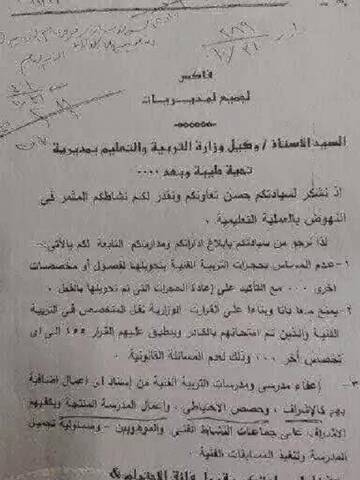 فاكس
لجميع المديريات
السيد الأستاذ / وكيل وزارة التربية والتعليم بمديرية
تحية طيبة وبعد ....
إذ نشكر لسيادتكم حسن تعاونكم ونقدر لكم نشاطكم المثمر في
النهوض بالعملية التعليمية .
لذا نرجو من سيادتكم بإبلاغ اداراتكم ومدارسكم التابعة لكم بالأتى:-
١- عدم المساس بحجرات التربية الفنية بتحويلها لفصول أو مخصصات
اخرى ... مع التأكيد على إعادة الحجرات التى تم تحويلها بالفعل .
٢- يمنع منعا باتا وبناءا على القرارات الوزارية نقل المتخصص فى التربية
الفنية والذين تم امتحانهم بالكادر وينطبق عليهم القرار ١٥٥ الى اى
تخصص أخر ... وذلك لعدم المسائلة القانونية .
٣- إعفاء مدرسى ومدرسات التربية الفنية من إسناد اى اعمال اضافية
بهم كالإشراف , وحصص الاحتياطى , وأعمال المدرسة المنتجة ويكفيهم
الاشراف على جماعات النشاط الفنى والموهوبين - ومسئولية تجميل
المدرسة وتنفيذ المسابقات الفنية .